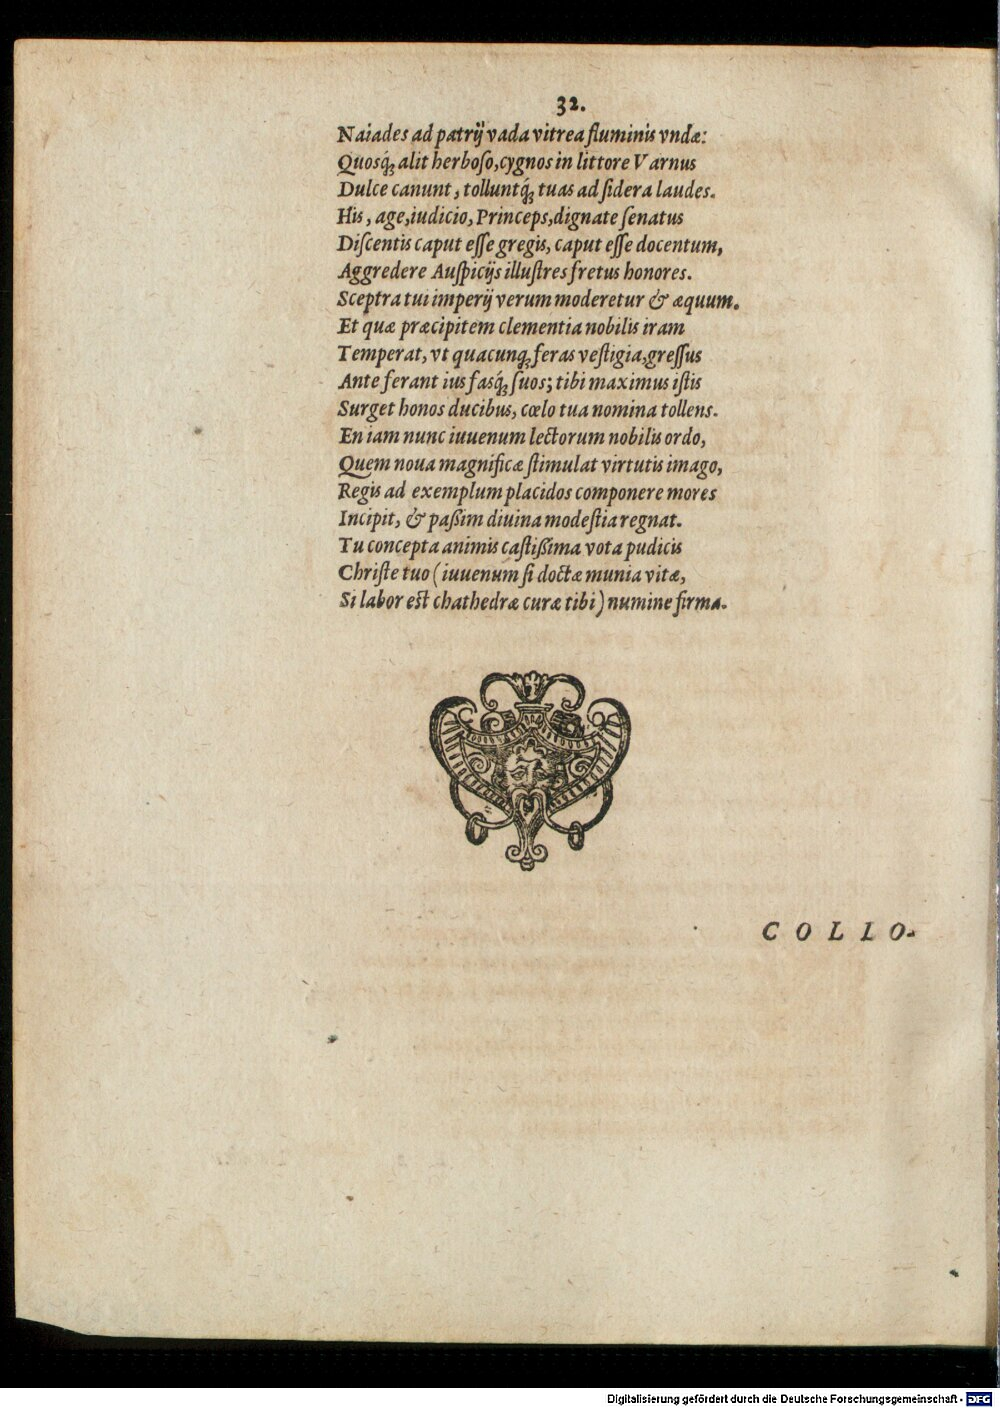 32.
Naiades ad patrij vada vitrea fluminis vndæ:
Quosq́; alit herboſo, cygnos in littore Varnus
Dulce canunt, tolluntq́; tuas ad ſidera laudes.
His, age, iudicio, Princeps, dignate ſenatus
Diſcentis caput eſſe gregis, caput eſſe docentum,
Aggredere Auſpicijs illuſtres fretus honores.
Sceptra tui imperij verum moderetur & æquum.
Et quæ præcipitem clementia nobilis iram
Temperat, vt quacunq; feras veſtigia, greſſus
Ante ferant ius fasq́; ſuos; tibi maximus iſtis
Surget honos ducibus, cœlo tua nomina tollens.
En iam nunc iuuenum lectorum nobilis ordo,
Quem noua magnificæ ſtimulat virtutis imago,
Regis ad exemplum placidos componere mores
Incipit, & paßim diuina modeſtia regnat.
Tu concepta animis caſtißima vota pudicis
Chriſte tuo (iuuenum ſi doctæ munia vitæ,
Si labor eſt chathedræ curæ tibi) numine firma.
COLLO-
Digitalisierung gefördert durch die Deutsche Forschungsgemeinschaft - DFG